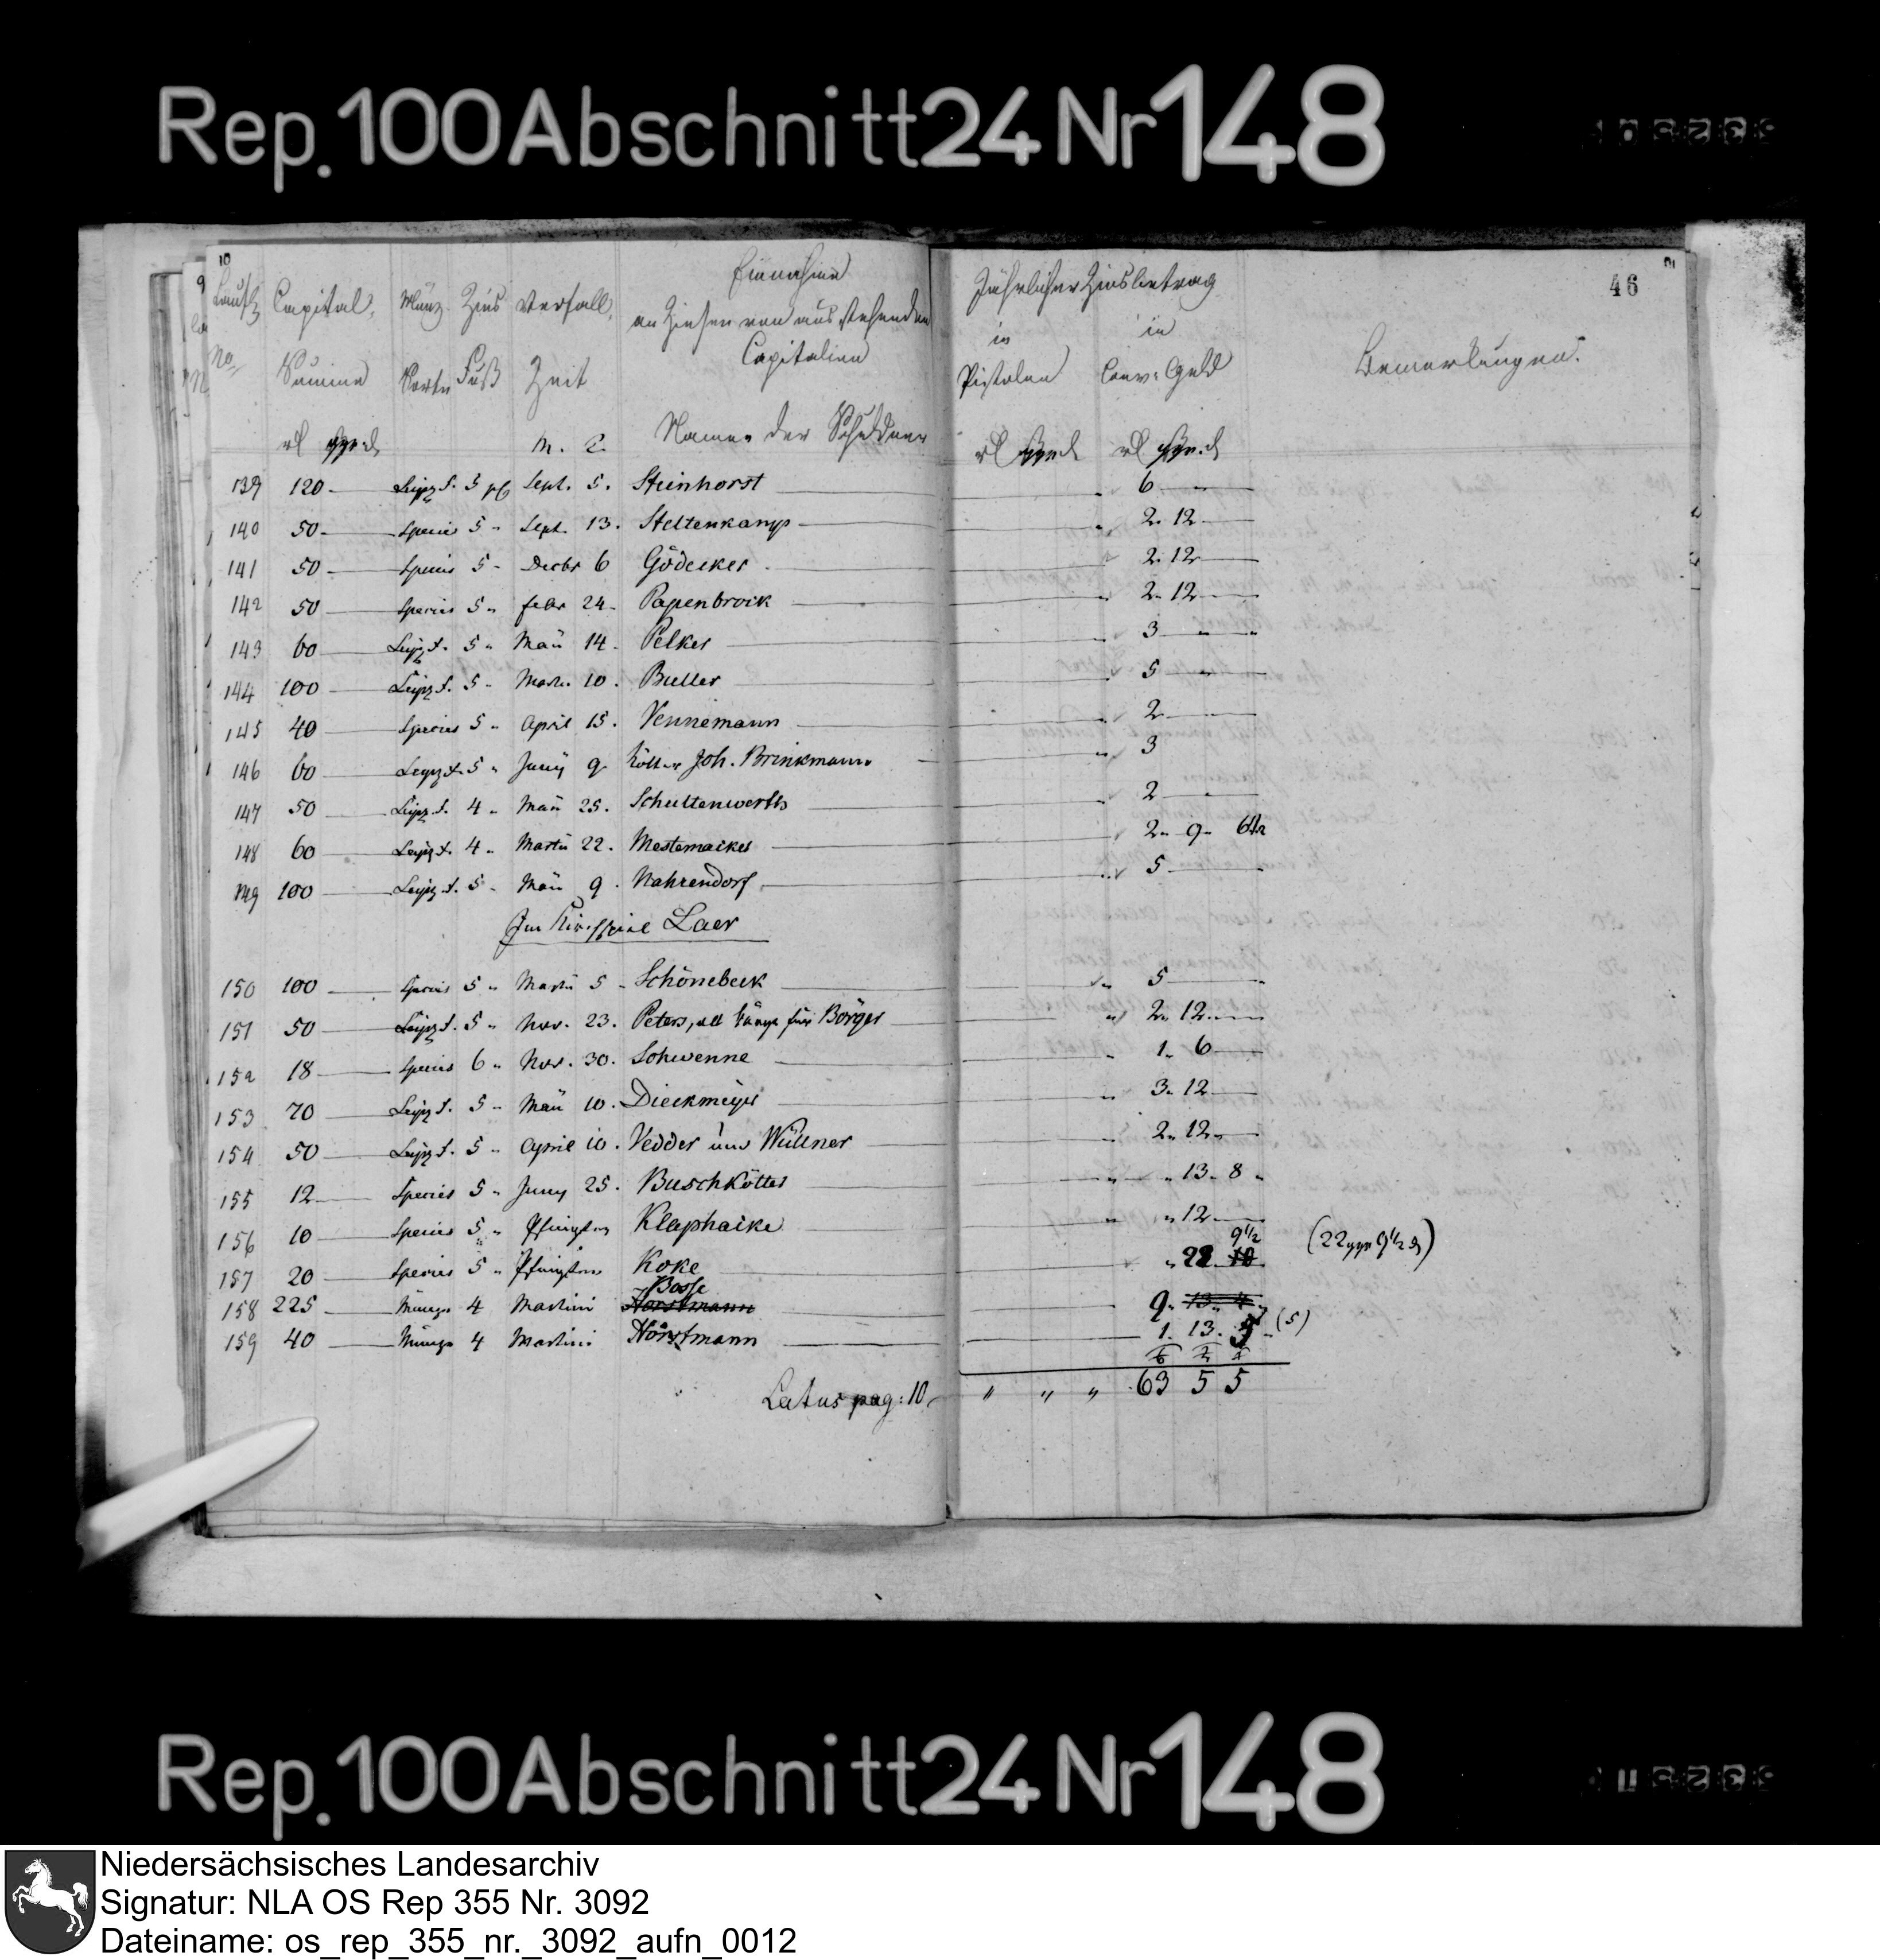 Rep. 100 Abschnitt 24 Nr 148
10
46
Laufde Capital, Münz Zins Verfall, Einnahme
an Zinsen von aus stehenden
Capitalien
No. Summe Sorte Fuß Zeit
Jährlicher Zinsbetrag
in in
Pistolen Conv: Geld
Bemerkungen.
rl ggr. d M. T. Namen der Schuldner rl ggr. d rl ggr. d
139 120 Leipz. f. 5 pC Sept. 5. Steinhorst 6
140 50 Species 5 " Sept. 13. Steltenkamp 2. 12
141 50 Species 5 " Decbr 6 Gödecker 2. 12
142 50 Species 5 " febr 24. Papenbrock 2. 12
143 60 Leipz. f. 5 " Maii 14. Pelker 3
144 100 Leipz. f. 5 " Martii 10. Buller 5
145 40 Species 5 " April 15. Vennemann 2
146 60 Leipz. f. 5 " Juny 9 Kötter Joh. Brinkmann 3
147 50 Leipz. f. 4 " Maii 25. Schultenwerth 2
148 60 Leipz. f. 4 " Martii 22. Mestemacker 2 " 9 " 6 1/2
149 100 Leipz. f. 5 " Maii 9. Nahrendorf 5
Im Kirchspiel Laer
150 100 Species 5 " Martii 5 Schönebeck 5
151 50 Leipz. f. 5 " Nov. 23. Peters, für Börger 2. 12
152 18 Species 6 " Nov. 30. Schwenne 1. 6
153 70 Leipz. f. 5 " Maii 10. Dieckmeyer 3. 12
154 50 Leipz. f. 5 " April 10. Vedder und Wüllner 2. 12
155 12 Species 5 " Juny 25. Buschkötter " 13. 8
156 10 Species 5 " Pfingsten Klaphacke " 12
157 20 Species 5 " Pfingsten Koke " 22 10 9 1/2 (22 ggr 9 1/2 d)
158 225 Münze 4 Martini Horstmann Bosse 9. 13. 4
159 40 Münze 4 Martini Horstmann 1. 13. (5)
Latus pag: 10 " " " 63 5 5
Rep. 100 Abschnitt 24 Nr 148
Niedersächsisches Landesarchiv
Signatur: NLA OS Rep 355 Nr. 3092
Dateiname: os_rep_355_nr._3092_aufn_0012